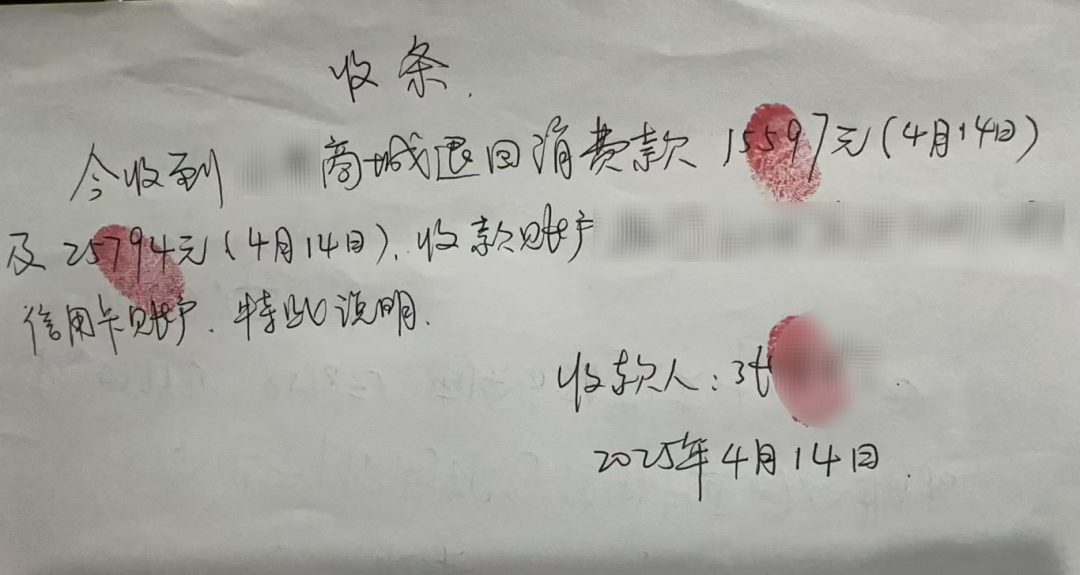 收条.
今收到 商城退回消费款 15597元(4月14日)
及25794元(4月14日),收款账户
信用卡账户.特此说明.
收款人:张
2025年4月14日.